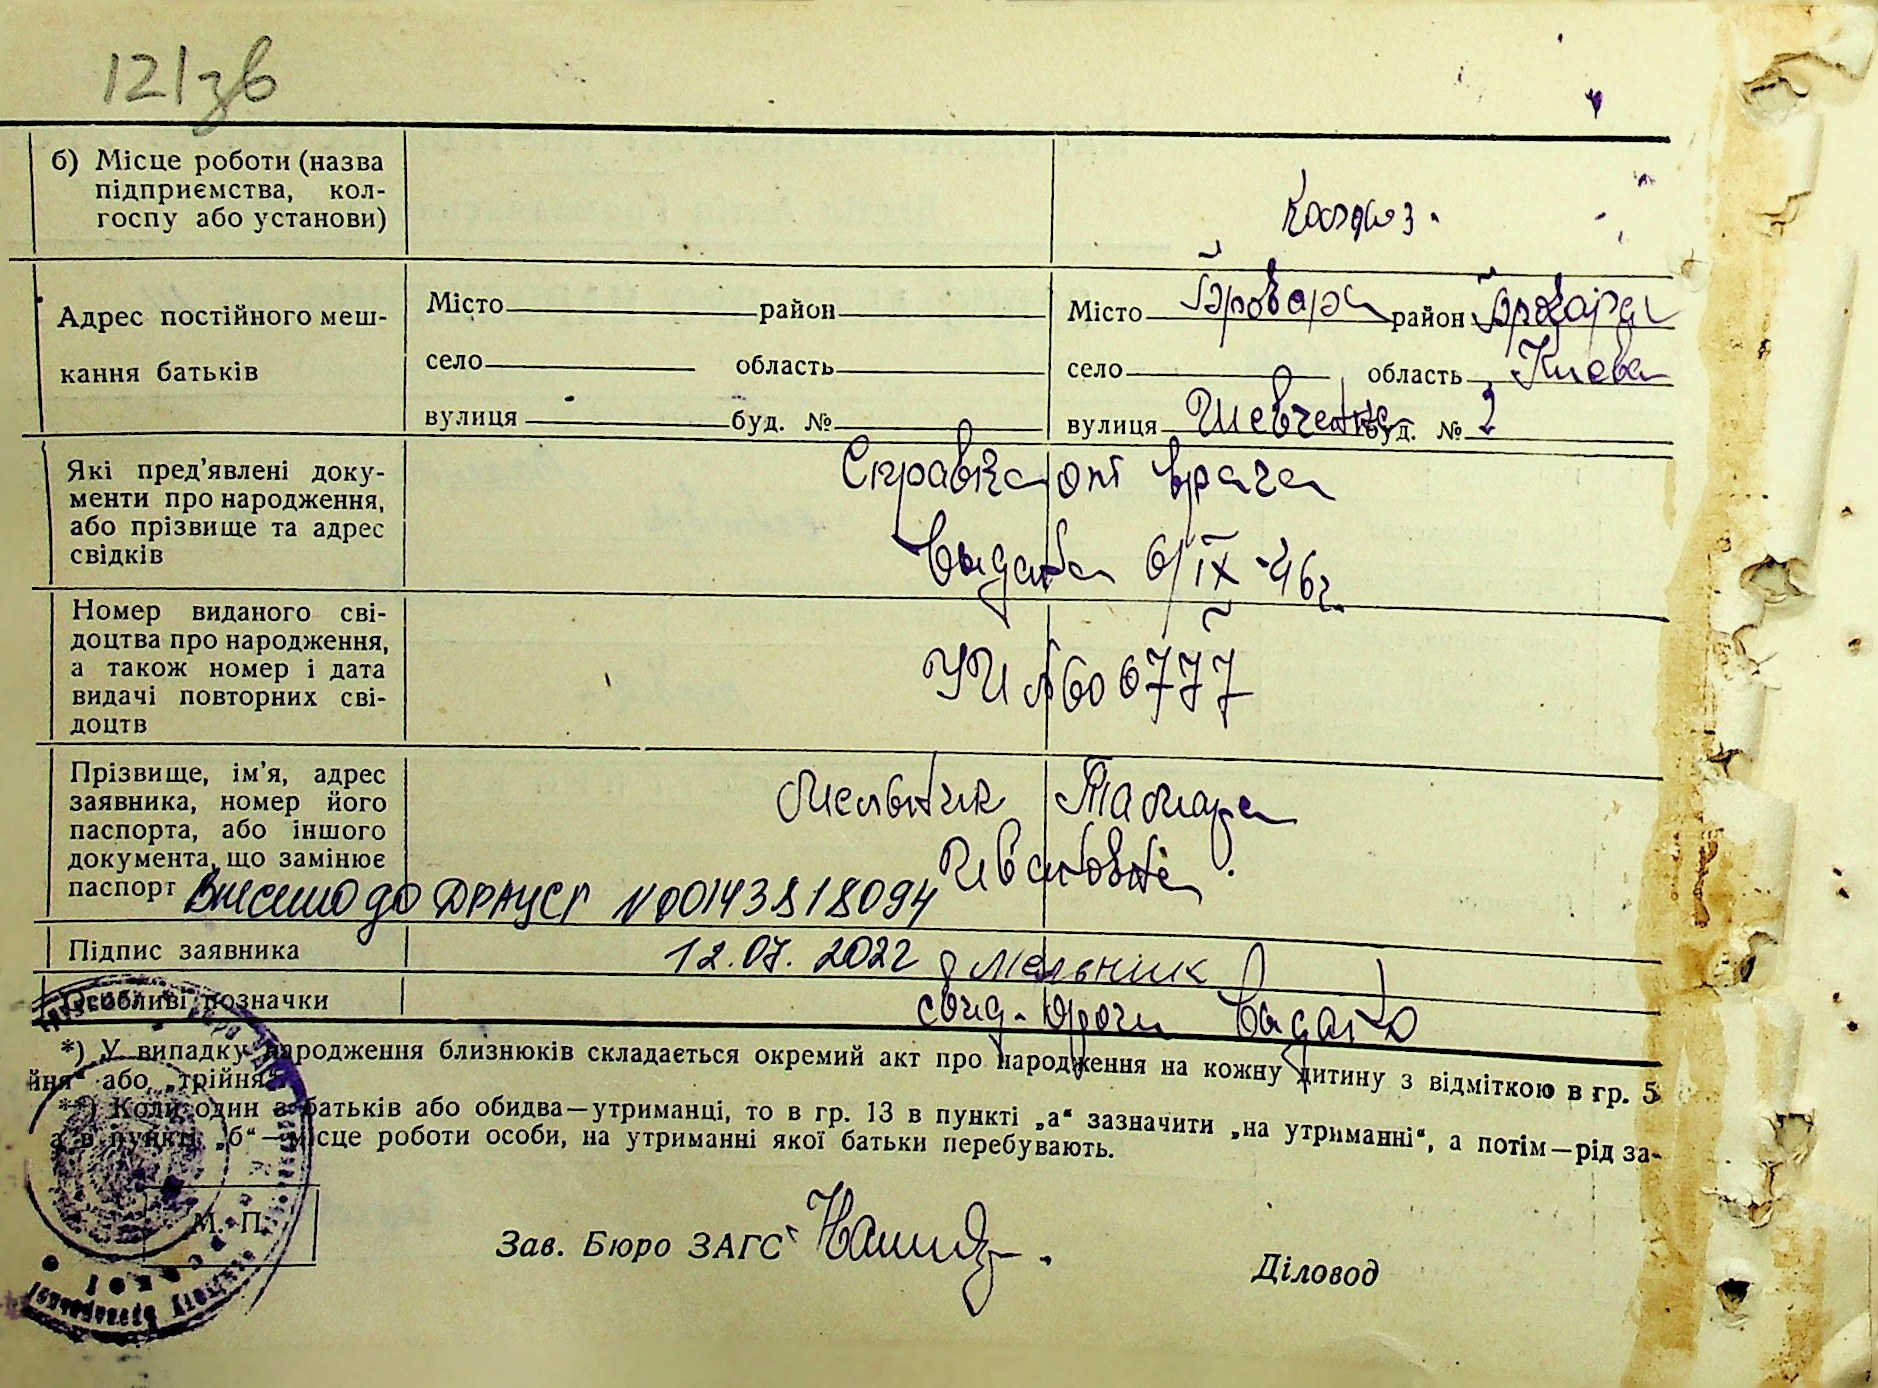 121зв
б) Місце роботи (назва
підприємства, кол-
госпу або установи)
колхоз.
Адрес постійного меш-
кання батьків
Місто район
село область
вулиця буд. №
Місто Бровари район Бровари
село область Киева
вулиця Шевченка буд. № 2
Які пред'явлені доку-
менти про народження,
або прізвище та адрес
свідків
Справка от врача
выдана 6/IX-46г.
Номер виданого сві-
доцтва про народження,
а також номер і дата
видачі повторних сві-
доцтв
УИ №606777
Прізвище, ім'я, адрес
заявника, номер його
паспорта, або іншого
документа, що замінює
паспорт
Мельник Тамара
Ивановна.
Внесено до ДРАЦСГ №00143818094
12.07.2022
Підпис заявника
Мельник
Особливі позначки
свид. выдано
*) У випадку народження близнюків складається окремий акт про народження на кожну дитину з відміткою в гр. 5
йня" або „трійня".
**) Коли один з батьків або обидва—утриманці, то в гр. 13 в пункті „а" зазначити „на утриманні", а потім—рід за-
а в пункті „б"—місце роботи особи, на утриманні якої батьки перебувають.
М. П.
Зав. Бюро ЗАГС
Діловод